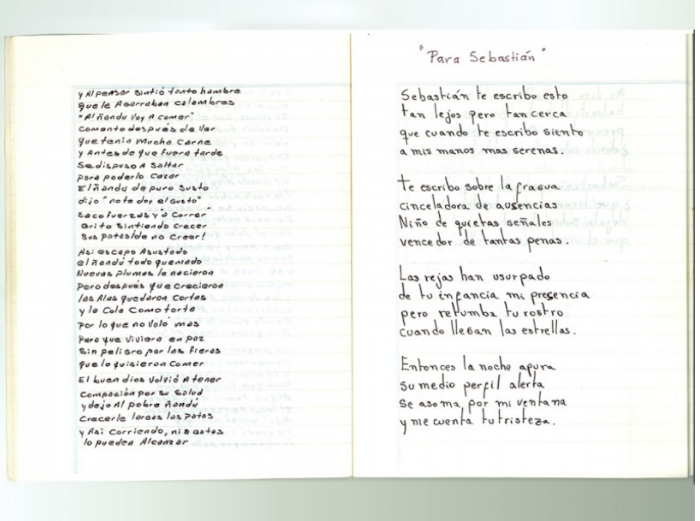 y Al pensar sintió tanto hambre
que le Agarraban calambres
"Al ñandú Voy A comer"
Comentó después de Ver
que tenía Mucha Carne
y Antes de que fuera tarde
Se dispuso A Saltar
para poderlo Cazar
El ñandú de puro Susto
dijo "no te doy el Gusto"
Saco fuerzas y "a Correr"
Grito Sintiendo Crecer
Sus patas ¡de no Creer!
Asi escapo Asustado
el ñandú todo quemado
Nuevas Plumas le nacieron
Pero después que Crecieron
las Alas quedaron Cortas
y la Cola Como torta
Por lo que no Voló mas
Para que Viviera en paz
Sin peligro por las Fieras
que lo quisieron Comer
El buen dios Volvió A tener
Compasión por su Salud
y dejo Al pobre ñandú
Crecerle largas las Patas
y Asi Corriendo, ni a gatas
lo pueden Alcanzar
"Para Sebastián"
Sebastián te escribo esto
tan lejos pero tan cerca
que cuando te escribo siento
a mis manos mas serenas.
te escribo sobre la fragua
cinceladora de ausencias
Niño de quietas señales
vencedor de tantas penas.
Las rejas han usurpado
de tu infancia mi presencia
pero retumba tu rostro
cuando llegan las estrellas.
Entonces la noche apura
Su medio perfil alerta
Se asoma por mi ventana
y me cuenta tu tristeza.